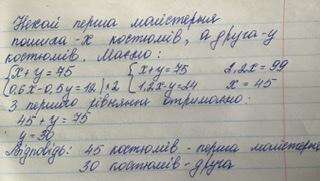 Нехай перша майстерня
пошила -х костюмів, а друга-у
костюмів. Маємо:
{х+у=75 {х+у=75 2,2х=99
{0,6х-0,5у=12 |·2 {1,2х-у=24 х=45
З першого рівняння отримаємо:
45+у=75
у=30
Відповідь: 45 костюмів - перша майстерня
30 костюмів - друга